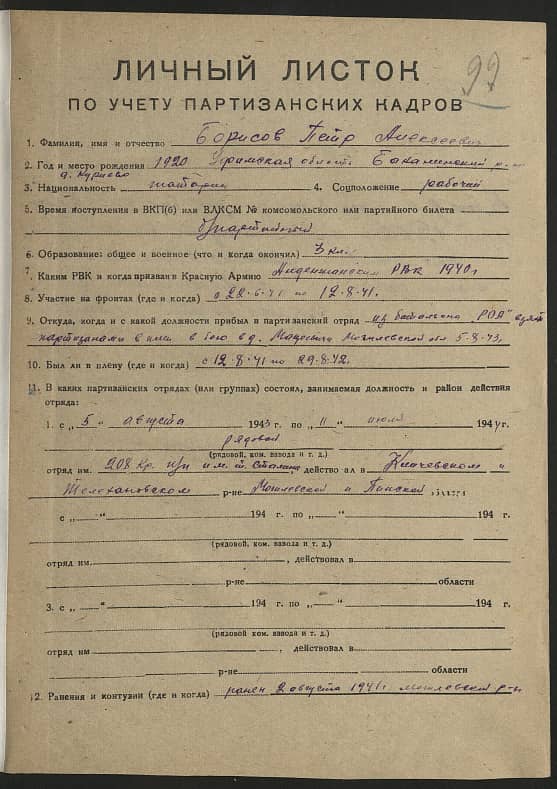 99
ЛИЧНЫЙ ЛИСТОК
ПО УЧЕТУ ПАРТИЗАНСКИХ КАДРОВ
1. Фамилия, имя и отчество Борисов Петр Алексеевич
2. Год и место рождения 1920 Крымская область
3. Национальность татарин 4. Соцположение рабочий
5. Время поступления в ВКП(б) или ВЛКСМ № комсомольского или партийного билета
безпартийный
6. Образование: общее и военное (что и когда окончил) 3 кл.
7. Каким РВК и когда призван в Красную Армию РВК 1940 г
8. Участие на фронтах (где и когда) с 22-6-41 по 12-8-41.
9. Откуда, когда и с какой должности прибыл в партизанский отряд из батальона "РОА" взят
партизанами в бою в д. Могилевской обл 5-8-43.
10. Был ли в плену (где и когда) с 12-8-41 по 29-8-42.
11. В каких партизанских отрядах (или группах) состоял, занимаемая должность и район действия
отряда:
1. с „5" августа 1943 г. по „11" июля 1944 г.
рядовой
(рядовой, ком. взвода и т. д.)
отряд им. 208 им. т. Сталина, действо ал в Кличевском и
Телехановском р-не Могилевской и Пинской области
с „ " 194 г. по „ " 194 г.
(рядовой, ком. взвода и т. д.)
отряд им. , действовал в
р-не области
3. с „ " 194 г. по „ " 194 г.
(рядовой ком. взвода и т. д.)
отряд им , действовал в
р-не области
12. Ранения и контузии (где и когда) ранен 2 августа 1941 г. Могилевской